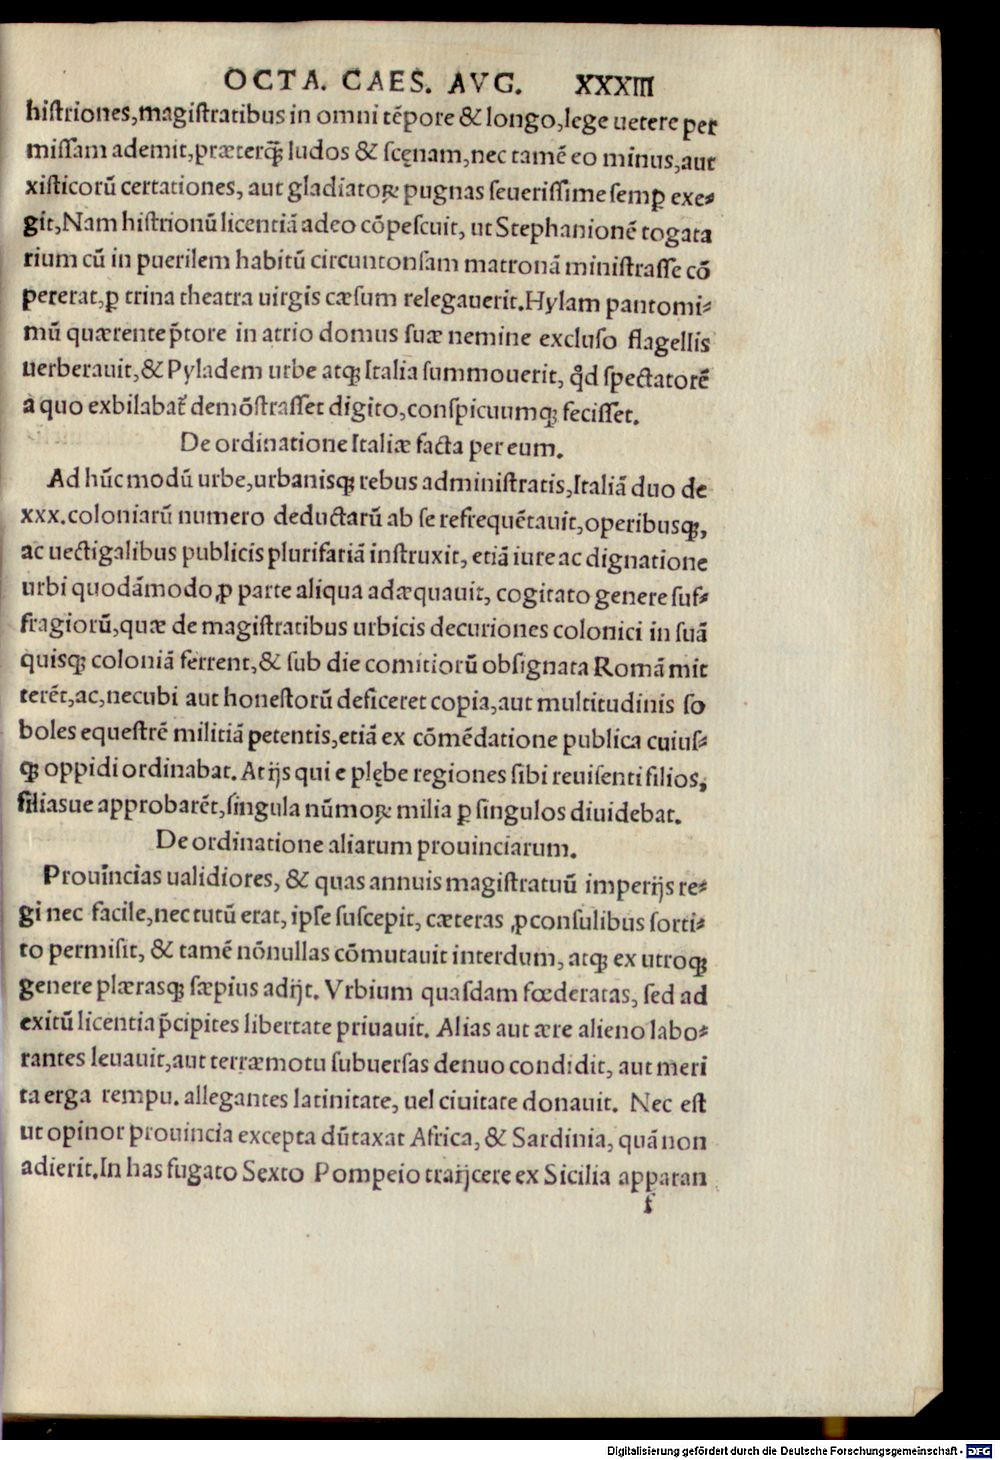 OCTA. CAES. AVG. XXXIII
histriones,magistratibus in omni tēpore & longo,lege uetere per
missam ademit,præterq̃ ludos & scęnam,nec tamē eo minus,aut
xisticorū certationes, aut gladiatoꝝ pugnas seuerissime semꝑ exe-
git,Nam histrionū licentiā adeo cōpescuit, ut Stephanionē togata
rium cū in puerilem habitū circuntonsam matronā ministrasse cō
pererat,ꝑ trina theatra uirgis cæsum relegauerit.Hylam pantomi-
mū quærente p̄tore in atrio domus suæ nemine excluso flagellis
uerberauit,& Pyladem urbe atqꝫ Italia summouerit, qd̓ spectatorē
a quo exbilabat̃ demōstrasset digito,conspicuumqꝫ fecisset.
De ordinatione Italiæ facta per eum.
Ad hūc modū urbe,urbanisqꝫ rebus administratis,Italiā duo de
xxx.coloniarū numero deductarū ab se refrequētauit,operibusqꝫ,
ac uectigalibus publicis plurifariā instruxit, etiā iure ac dignatione
urbi quodāmodo ꝓ parte aliqua adæquauit, cogitato genere suf-
fragiorū,quæ de magistratibus urbicis decuriones colonici in suā
quisqꝫ coloniā ferrent,& sub die comitiorū obsignata Romā mit
terēt,ac,necubi aut honestorū deficeret copia,aut multitudinis so
boles equestrē militiā petentis,etiā ex cōmēdatione publica cuius-
qꝫ oppidi ordinabat. At ijs qui e plębe regiones sibi reuisenti filios,
filiasue approbarēt,singula nūmoꝝ milia ꝑ singulos diuidebat.
De ordinatione aliarum prouinciarum.
Prouīncias ualidiores, & quas annuis magistratuū imperijs re-
gi nec facile,nec tutū erat, ipse suscepit, cæteras ꝓconsulibus sorti-
to permisit, & tamē nōnullas cōmutauit interdum, atqꝫ ex utroqꝫ
genere plærasqꝫ sæpius adijt. Vrbium quasdam fœderatas, sed ad
exitū licentia p̄cipites libertate priuauit. Alias aut ære alieno labo-
rantes leuauit,aut terræmotu subuersas denuo condidit, aut meri
ta erga rempu. allegantes latinitate, uel ciuitate donauit. Nec est
ut opinor prouincia excepta dūtaxat Africa, & Sardinia, quā non
adierit.In has fugato Sexto Pompeio traijcere ex Sicilia apparan
f
Digitalisierung gefördert durch die Deutsche Forschungsgemeinschaft - DFG